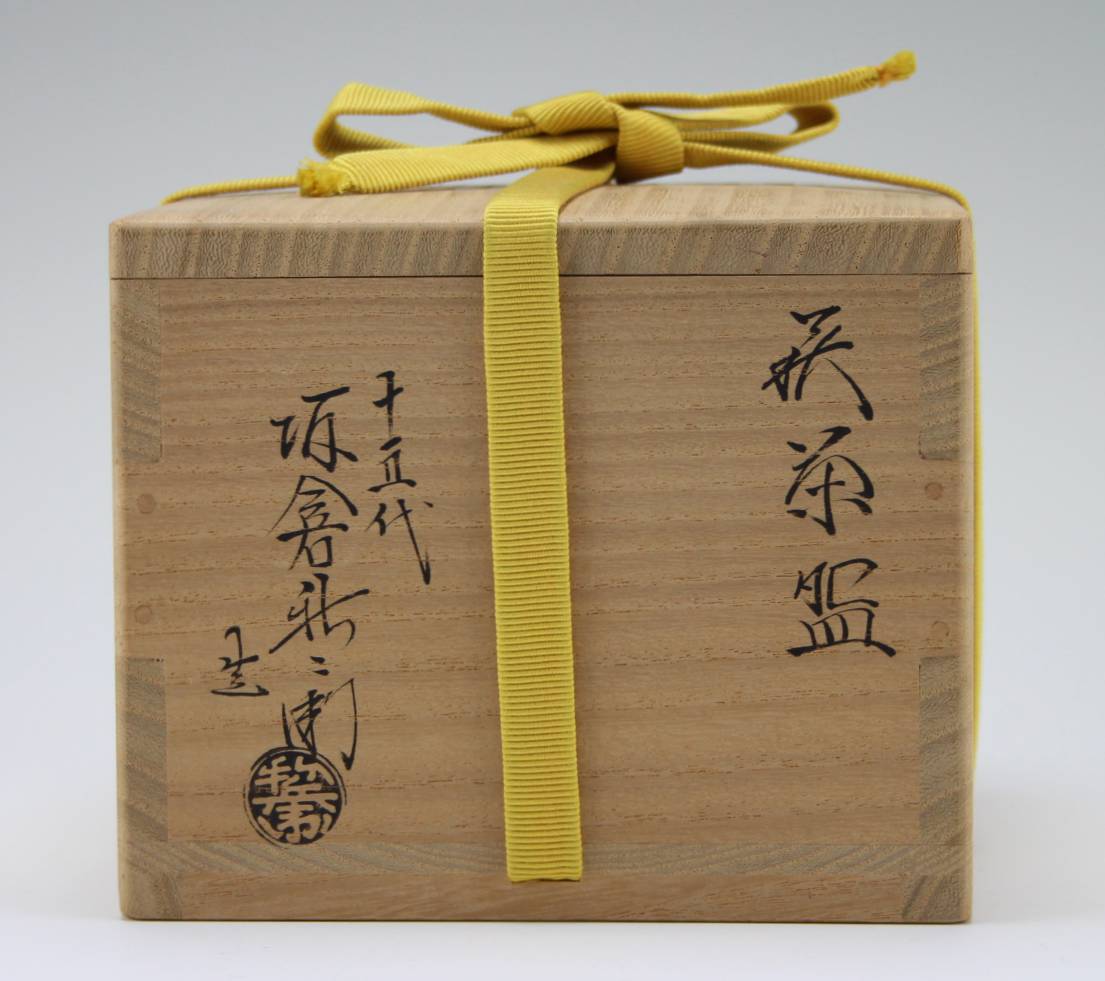 萩茶盌
十五代
坂倉新兵衛
造